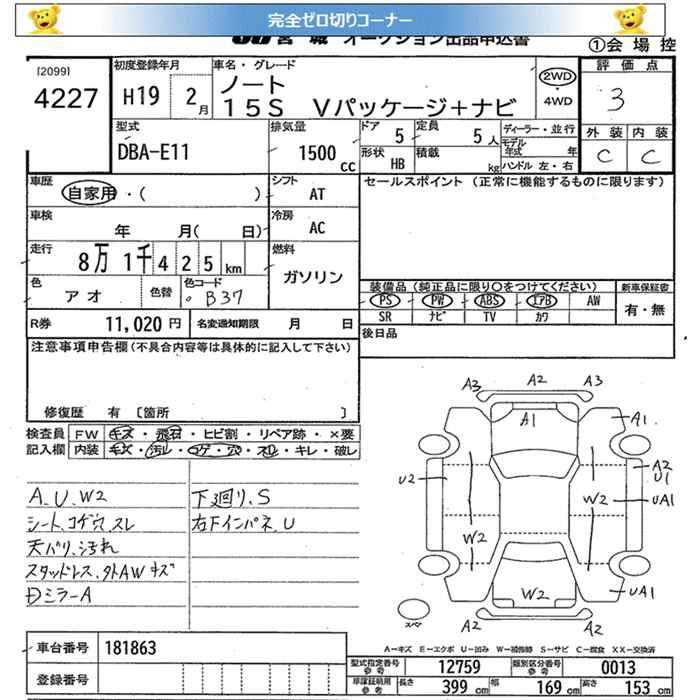 完全ゼロ切りコーナー
JU宮城 オークション出品申込書
①会場控
[2099]
4227
初度登録年月
H19 2月
車名・グレード
ノート
15S Vパッケージ+ナビ
2WD
・
4WD
評価点
3
外装 内装
C C
型式
DBA-E11
排気量
1500 cc
ドア 5
定員 5人
形状 HB
積載 kg
ディーラー・並行
モデル年式 年
ハンドル 左・右
車歴
自家用・( )
シフト AT
セールスポイント (正常に機能するものに限ります)
車検
年 月( 日)
冷房 AC
走行
8万 1千 4 2 5 km
燃料
ガソリン
色
アオ
色替
色コード
B37
装備品(純正品に限り○をつけてください)
新車保証書
PS PW ABS エアB AW
SR ナビ TV カワ
有・無
R券 11,020 円
名変通知期限 月 日
後日品
注意事項申告欄(不具合内容等は具体的に記入して下さい)
修復歴 有 [箇所 ]
検査員
記入欄
FW キズ・飛石・ヒビ割・リペア跡・×要
内装 キズ・汚レ・コゲ・穴・スレ・キレ・破レ
A、U、W2
シート、コゲ穴、スレ
天バリ、汚れ
スタッドレス、外AWキズ
日ミラーA
下廻り、S
右Fインパネ、U
A3 A2 A3
A1 A1
U2 A2
U1
W2 UA1
W2
W2 UA1
A2 A2
スペア
A-キズ E-エクボ U-凹み W-補修跡 S-サビ C-腐食 XX-交換済
車台番号 181863
登録番号
型式指定番号 参考 12759
類別区分番号 参考 0013
車庫証明用 参考
長さ 399 cm
幅 169 cm
高さ 153 cm